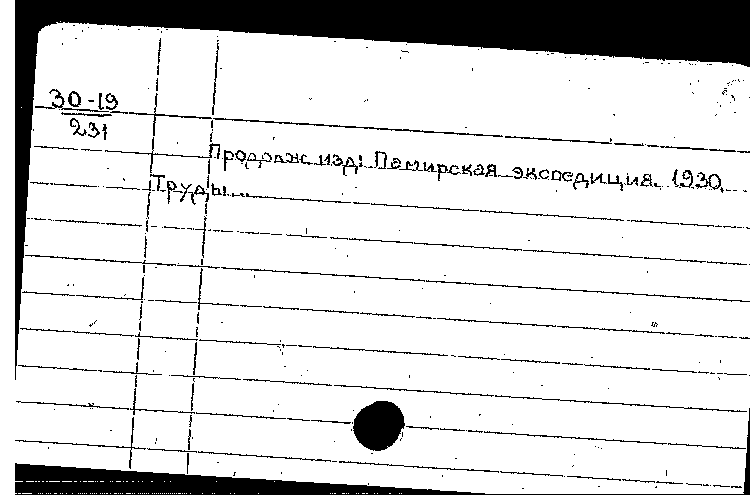 30-19
231
Продолж. изд: Памирская экспедиция. 1930.
Труды...